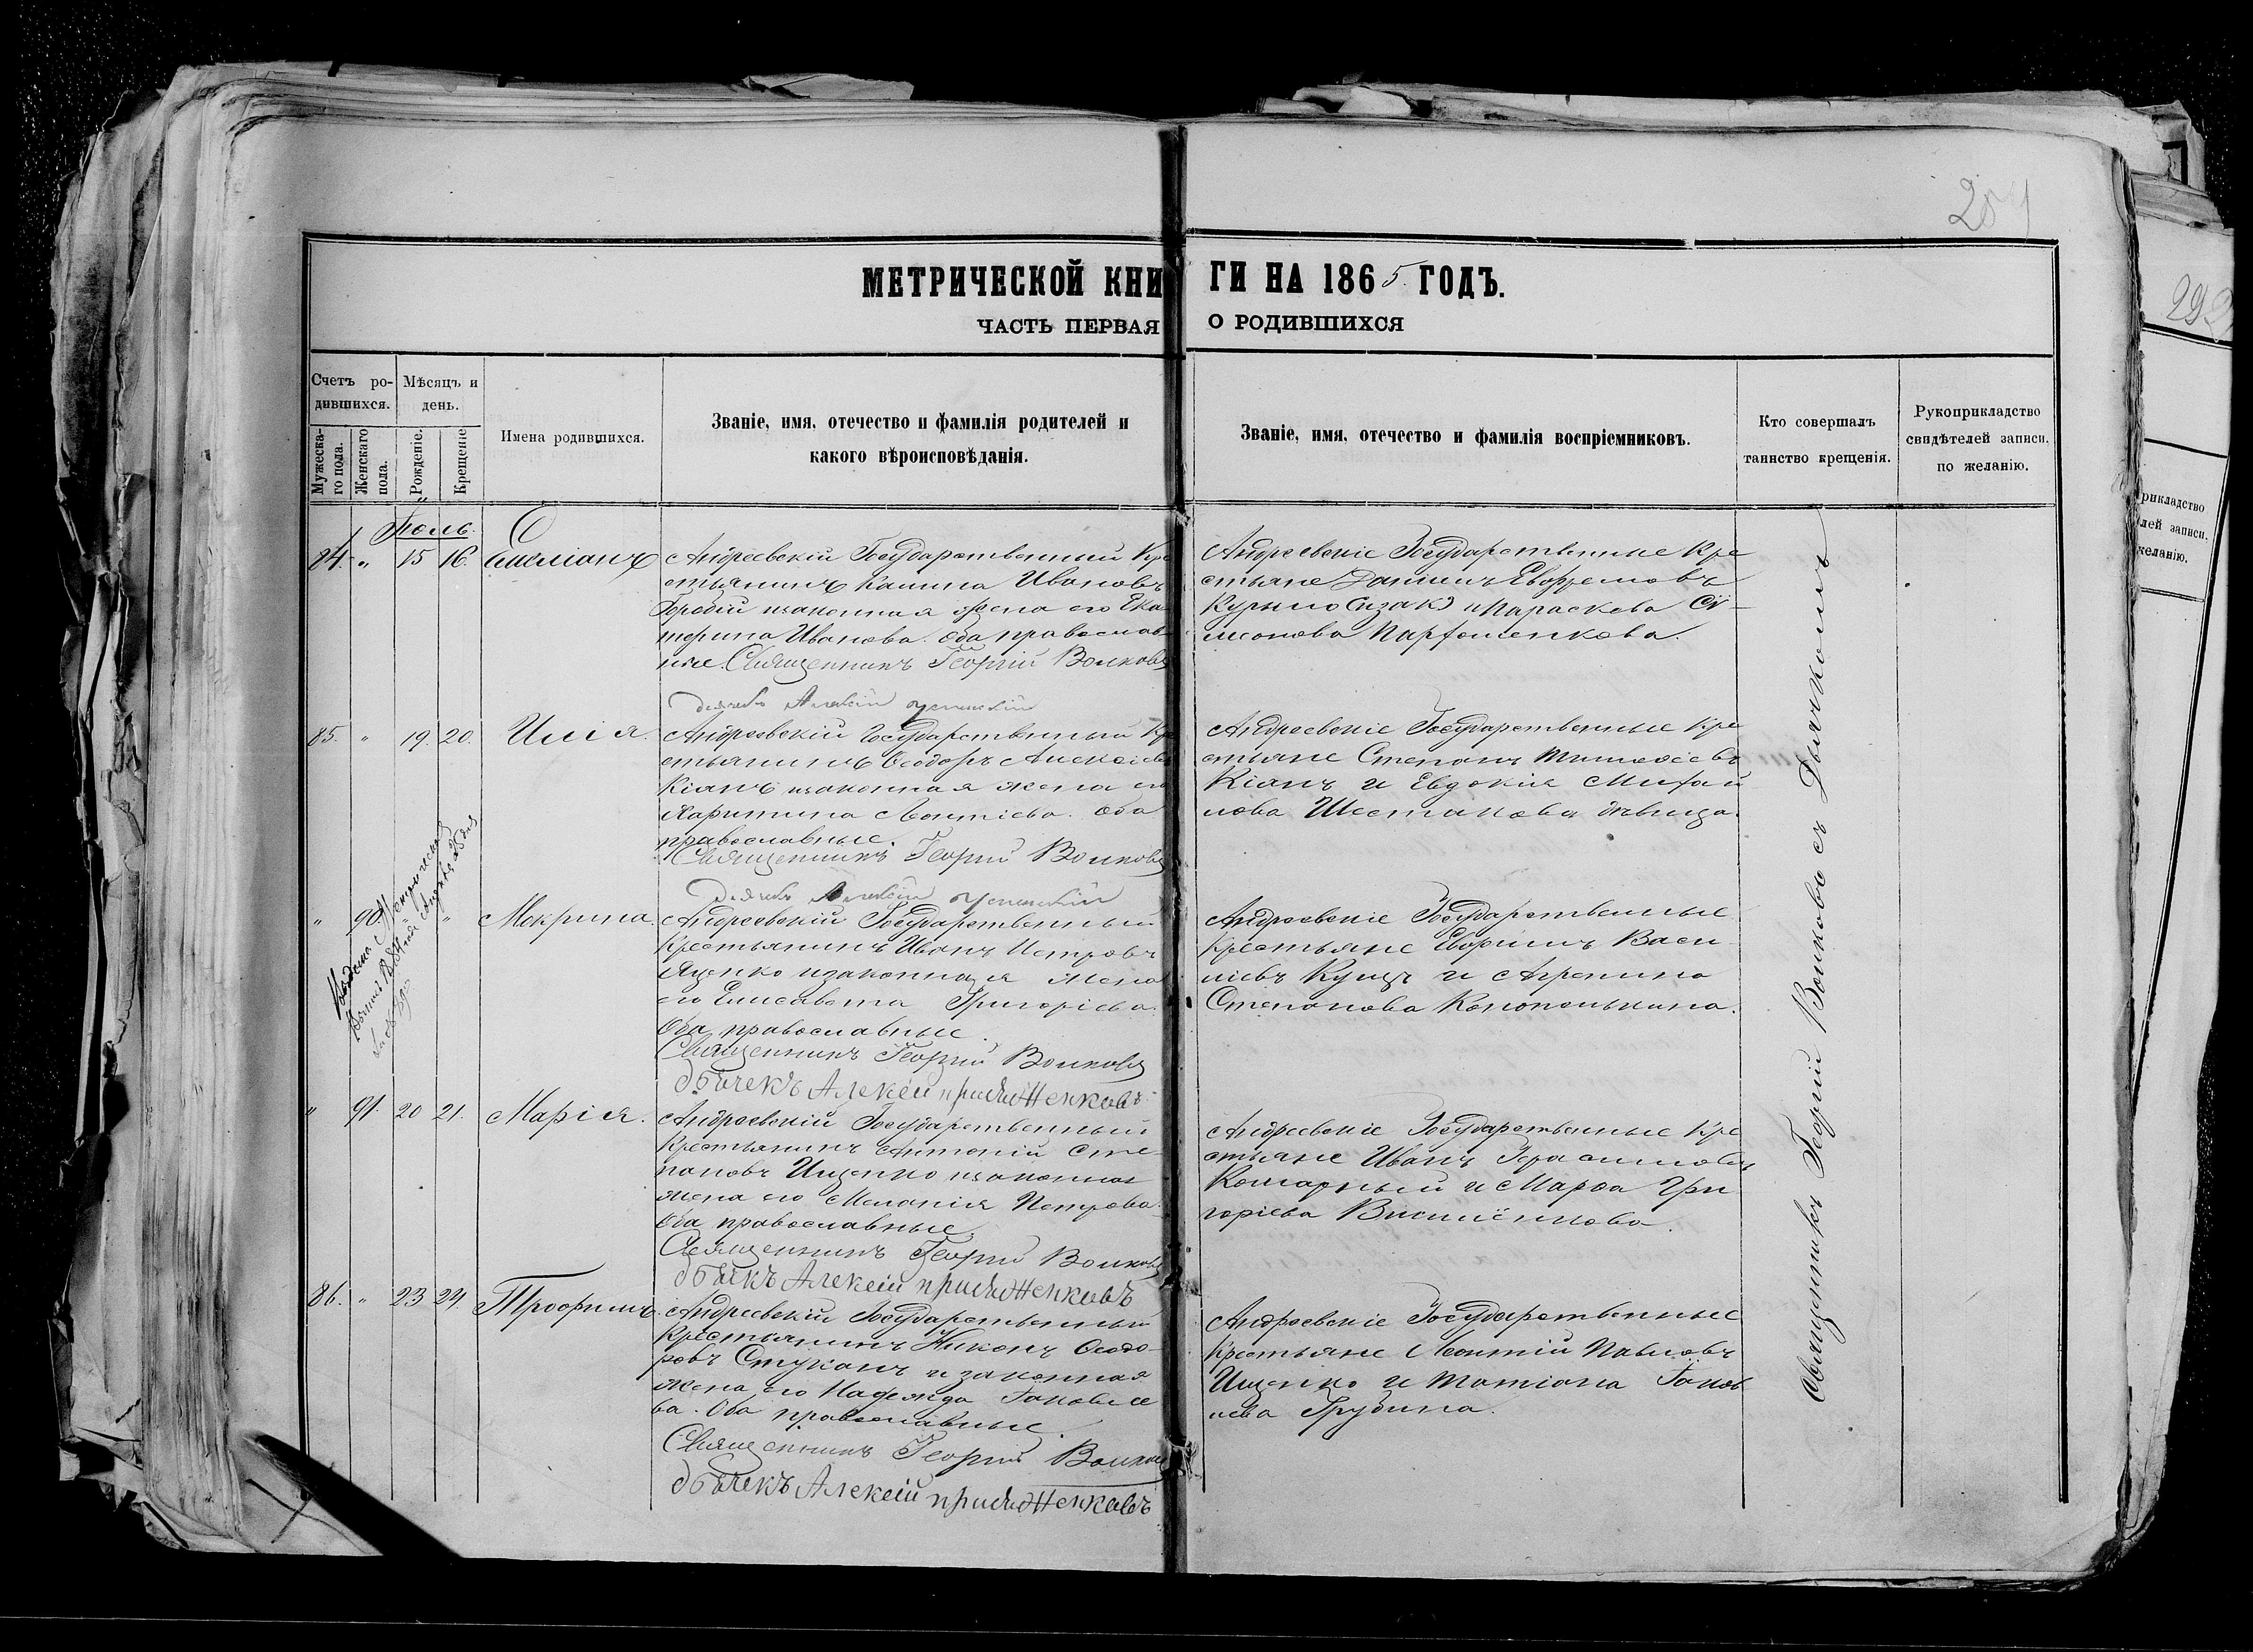 МЕТРИЧЕСКОЙ КНИГИ НА 1865 ГОДЪ.
ЧАСТЬ ПЕРВАЯ О РОДИВШИХСЯ
Счетъ ро-
дившихся.
Мѣсяцъ и
день.
Мужеска-
го пола.
Женскаго
пола.
Рожденіе.
Крещеніе
Имена родившихся.
Званіе, имя, отечество и фамилія родителей и
какого вѣроисповѣданія.
Званіе, имя, отечество и фамилія воспріемниковъ.
Кто совершалъ
таинство крещенія.
Рукоприкладство
свидѣтелей записи,
по желанію.
Іюль.
84. " 15 16. Емеліанъ
Андреевскій Государственный Кре
стьянинъ Иванов
жена его Ека
терина Иванова. Оба православ
ные. Священникъ Георгій Волковъ
Андреевскіе Государственные Кре
стьяне Даніилъ Евфремовъ
и Параскева Си-
меонова Парфоменкова.
85. " 19. 20. Илія.
Андреевскій Государственный Кр
стьянинъ Ѳеодоръ Алексіев
Кіянъ изаконная жена его
Харитина Леонтіева. Оба
православные.
Священникъ Георгій Волковъ
Андреевскіе Государственные Кре
стьяне Степанъ Тимоѳіевъ
Кіянъ и Евдокія Михай
лова Шестакова дѣвица.
" 90. " " Мокрина.
Андреевскій Государственный
Крестьянинъ Иванъ Петровъ
Яценко изаконная жена
его Елисавета Григоріева.
Оба православные.
Священникъ Георгій Волковъ
Андреевскіе Государственные
Крестьяне Васи
ліевъ Куцъ и Агрепина
Степанова Конопелькина.
" 91. 20 21. Марія.
Андреевскій Государственный
Крестьянинъ Антоній Сте-
пановъ Ищенко изаконная
жена его Меланія Петрова.
Оба православные
Священникъ Георгій Волковъ
Андреевскіе Государственные Кре
стьяне Иванъ Герасимовъ
Комарный и Марѳа Гри
горіева
86. " 23 24. Трофимъ.
Андреевскій Государственный
Крестьянинъ Никонъ Ѳеодо-
ровъ Стуканъ и законная
жена его Надежда Іаковле
ва. Оба православные.
Священникъ Георгій Волков
Андреевскіе Государственные
Крестьяне Леонтій Павловъ
Ищенко и Татіана Іаков
лева Грудина.
Священникъ Георгій Волковъ съ Дьячкомъ